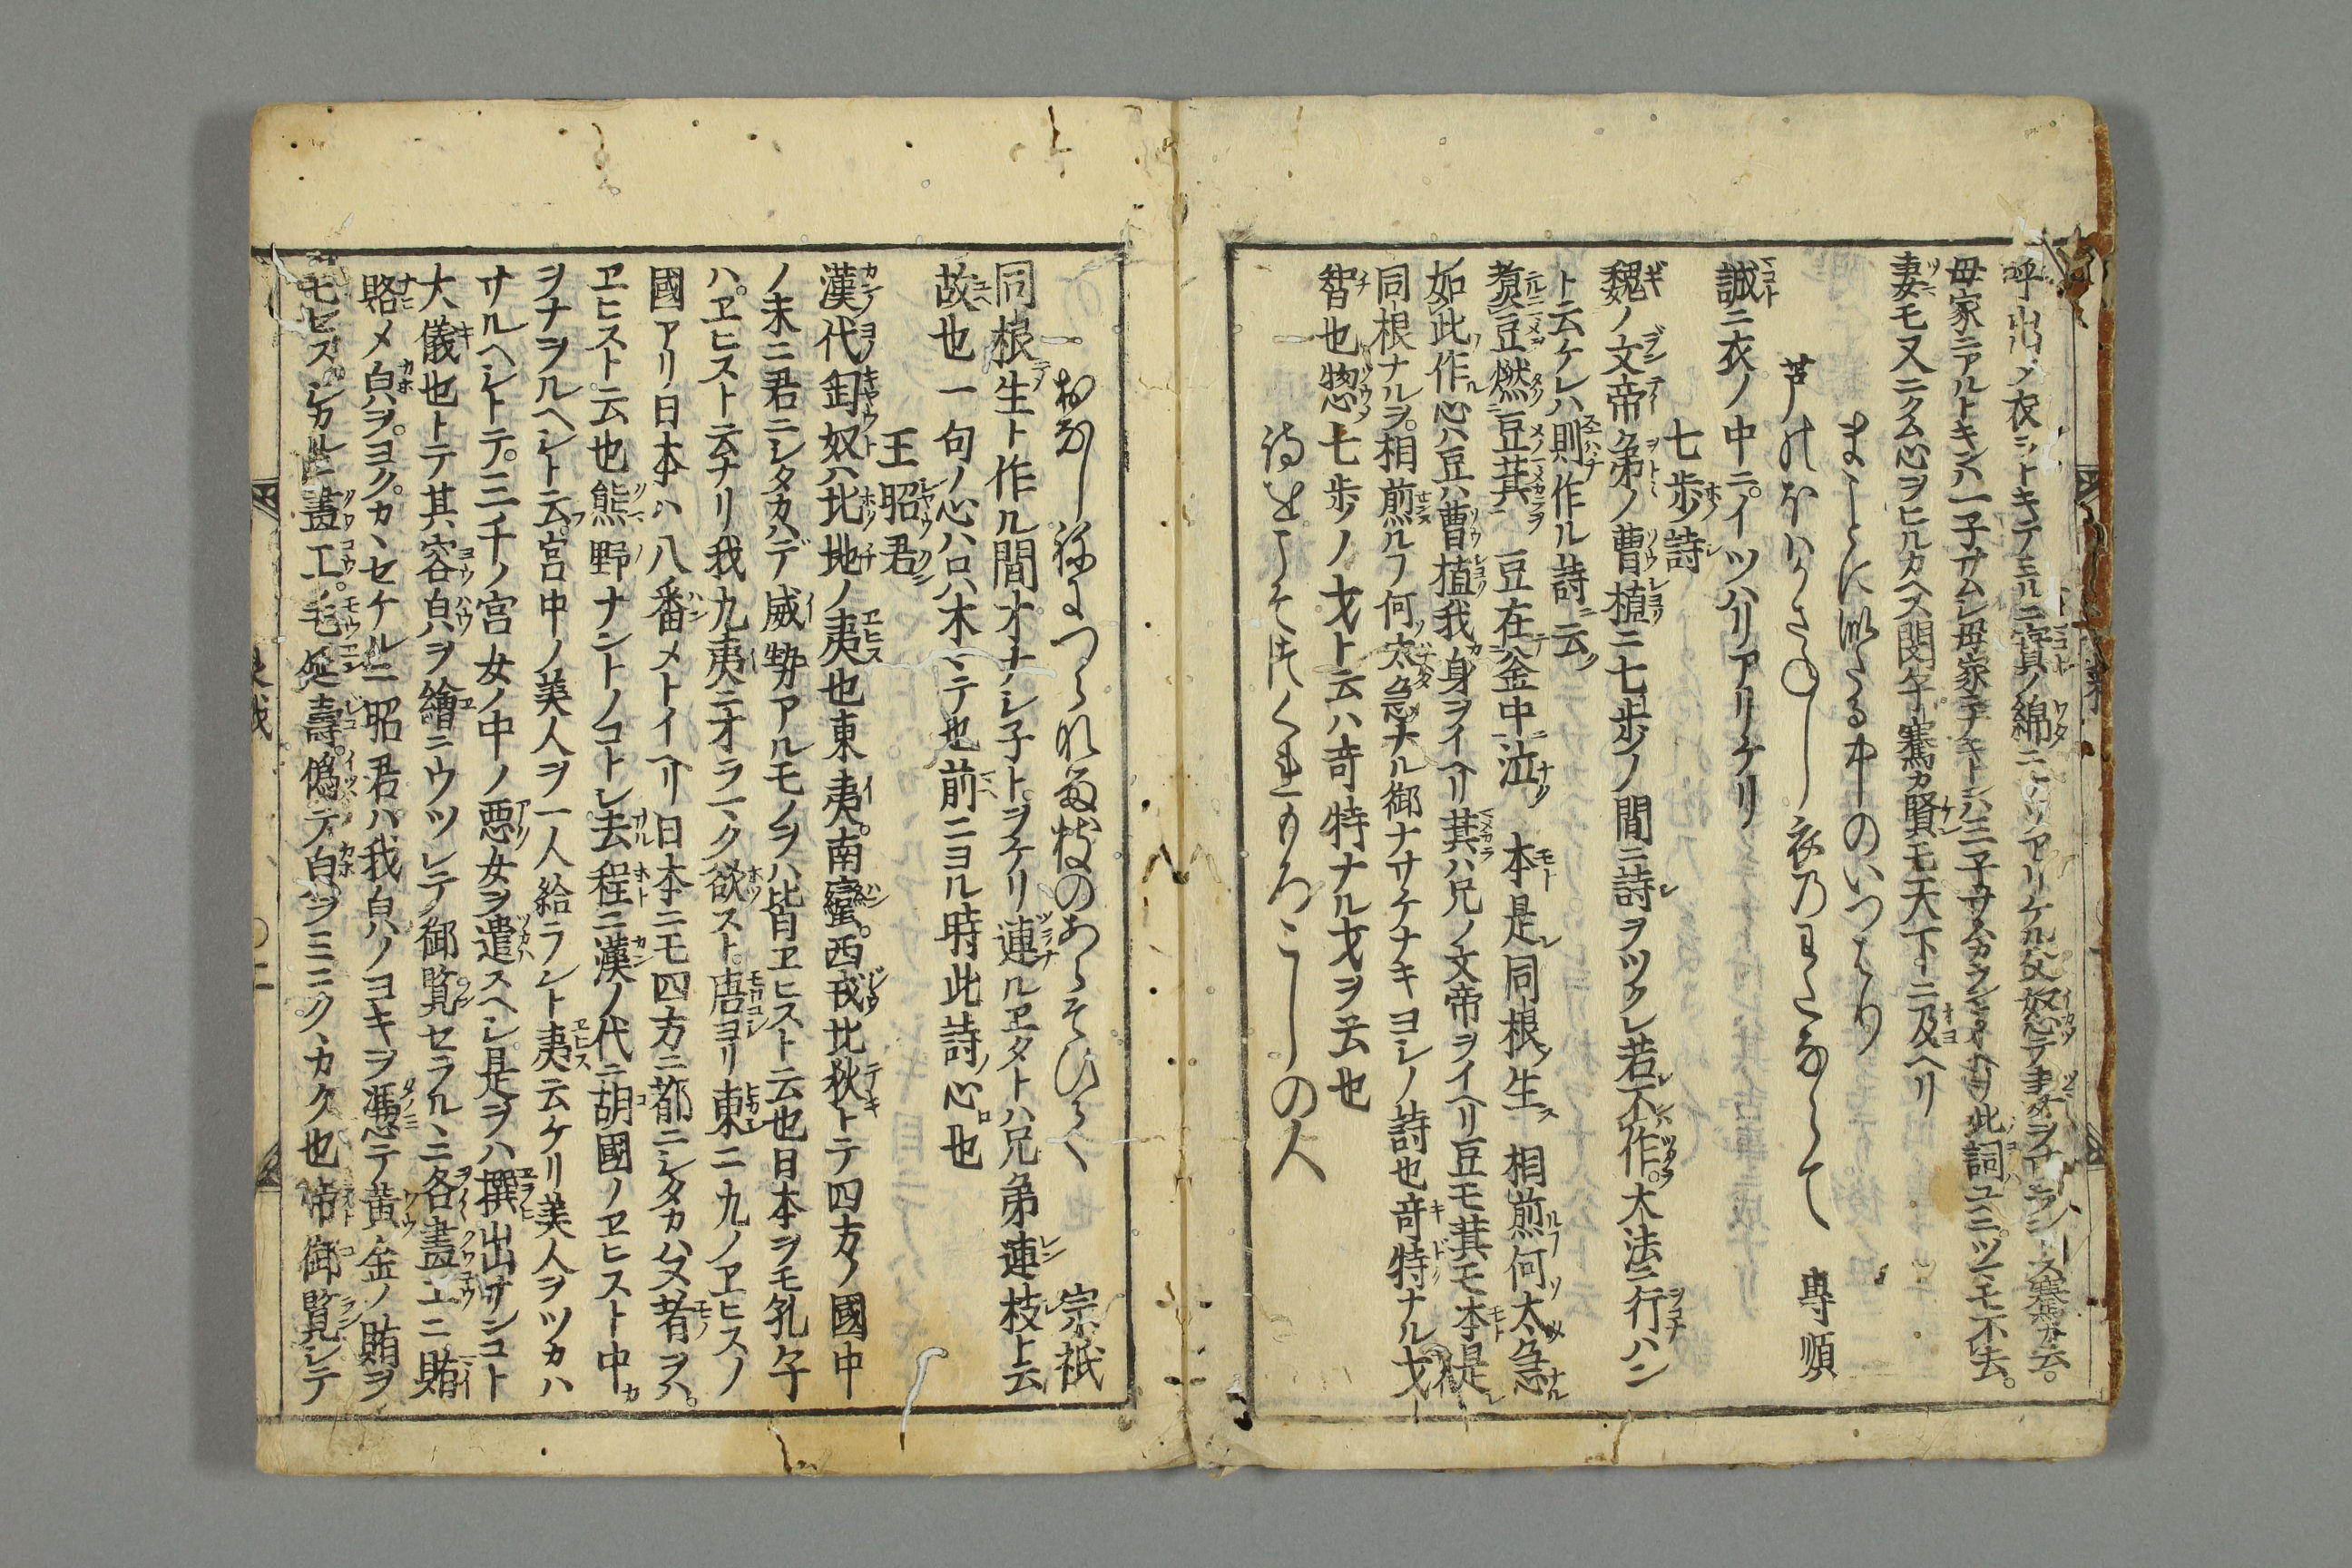 呼出メ衣ヲトキテミルニ實ノ綿ニハアリケル父怒テ妻ヲサラントス騫カ云。
母家ニアルトキンハ一子サムシ母家ニナキトキンハ三子サムカラン此詞ユニツイニモ不去。
妻モ又ニクム心ヲヒルカヘス閔子騫カ賢モ天下ニ及ヘリ
まことに似たる中のいつはり
芦のほハかさねし衣のわたならて 專順
誠ニ衣ノ中ニイツハリアリケリ
七歩詩
魏ノ文帝弟ノ曹植ニ七歩ノ間ニ詩ヲツクレ若不作。大法ニ行ハン
ト云ケレハ則作ル詩ニ云
煮豆燃豆萁 豆在釜中泣 本是同根生 相煎何太急
如此作心ハ豆ハ曹植我身ヲイヘリ萁ハ兄ノ文帝ヲイヘリ豆モ萁モ本是
同根ナルヲ。相煎ルフ何太急ナル御ナサケナキヨシノ詩也奇特ナル才
智也惣七歩ノ才ト云ハ奇特ナル才ヲ云也
一 詩をこそはくれもろこしの人
一 おなしねにつらなる枝のあらそひて 宗祇
同根生ト作ル間オナシ子トヲケリ連ルエタトハ兄弟連枝ト云
故也一句ノ心ハロハ木ニテ也前ニヨル時此詩ノ心ロ也
王昭君
漢代匈奴ハ北地ノ夷也東夷。南蠻。西戎北狄トテ四方ノ國中
ノ末ニ君ニシタカハデ威勢アルモノヲハ皆ヱヒスト云也日本ヲモ孔子
ハ。ヱヒスト云ナリ我九夷ニオラマク欲スト。唐ヨリ東ニ九ノヱヒスノ
國アリ日本ハ八番メトイヘリ日本ニモ四方ニ都ニシタカハヌ者ヲハ。
ヱヒスト云也熊野ナントノコトシ去程ニ漢ノ代ニ胡國ノヱヒスト中
ヲナヲルヘシト云。宮中ノ美人ヲ一人給ラレト夷云ケリ美人ヲツカハ
サルヘシトテ。三千ノ宮女ノ中ノ悪女ヲ遣スヘシ是ヲハ撰出サンコト
大儀也トテ其容皃ヲ繪ニウツシテ御覧セラルヽニ各畫工ニ賄
賂メ皃ヲ。ヨクカヽセケルニ昭君ハ我皃ノヨキヲ憑テ黄金ノ賄ヲ
モセスシカルニ畫工。毛延壽。偽テ皃ヲミニクヽカク也帝御覧シテ